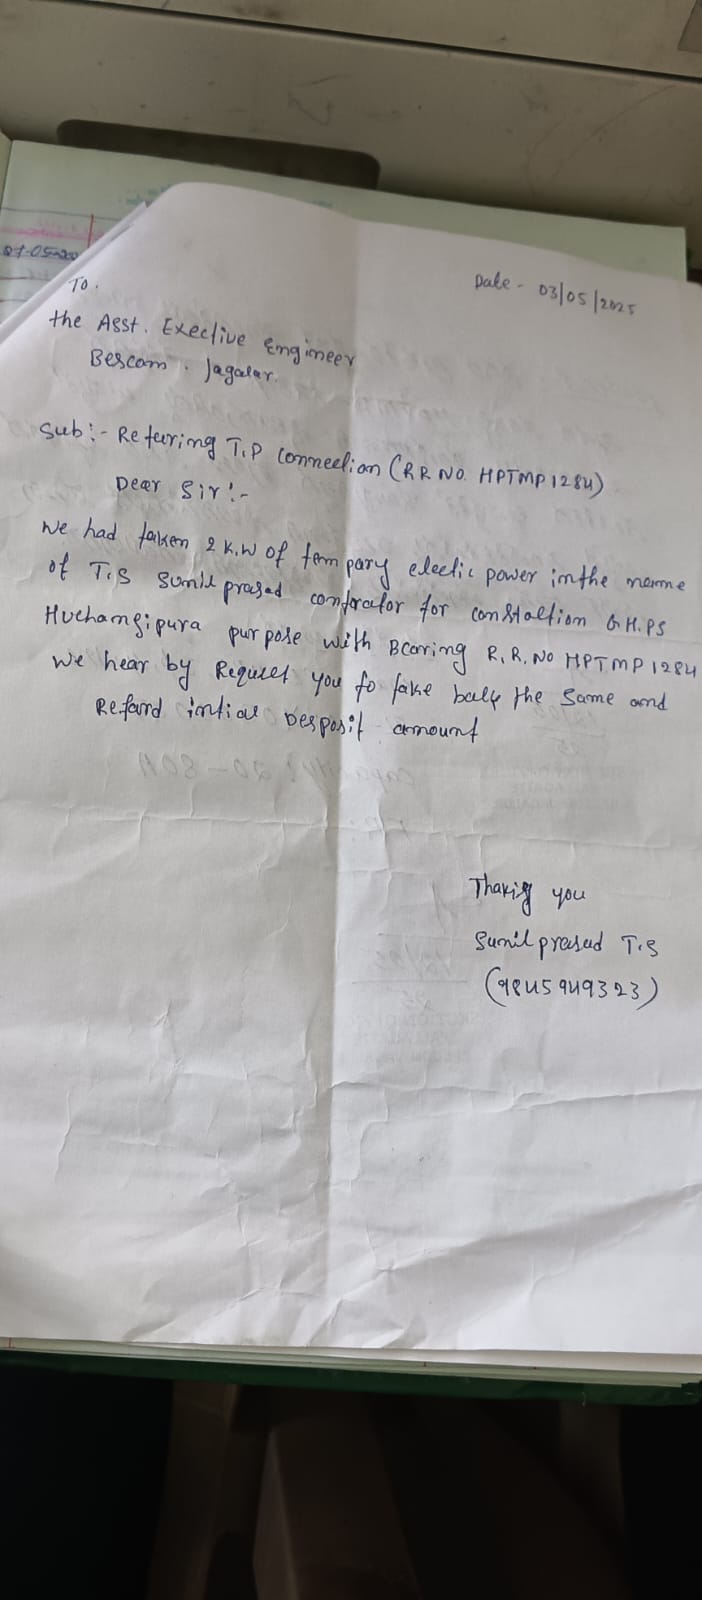 07-05-20
Date - 03/05/2025
To.
the Asst. Exective Engineer
Bescom. Jagalar.
Sub:- Refering T.P Connection (RR NO. HPTMP1284)
Dear Sir:-
We had taken 2 K.W of tempary electic power in the name
of T.S Sunil prasad contorator for constaltion G.H.PS
Huchangipura purpose with Bearing R.R. No HPTMP 1284
We hear by Request you to take back the same and
Refand intial Desposit amount
capacity: 20-80A
Thankig you
Sunil prasad T.S
(9845949323)